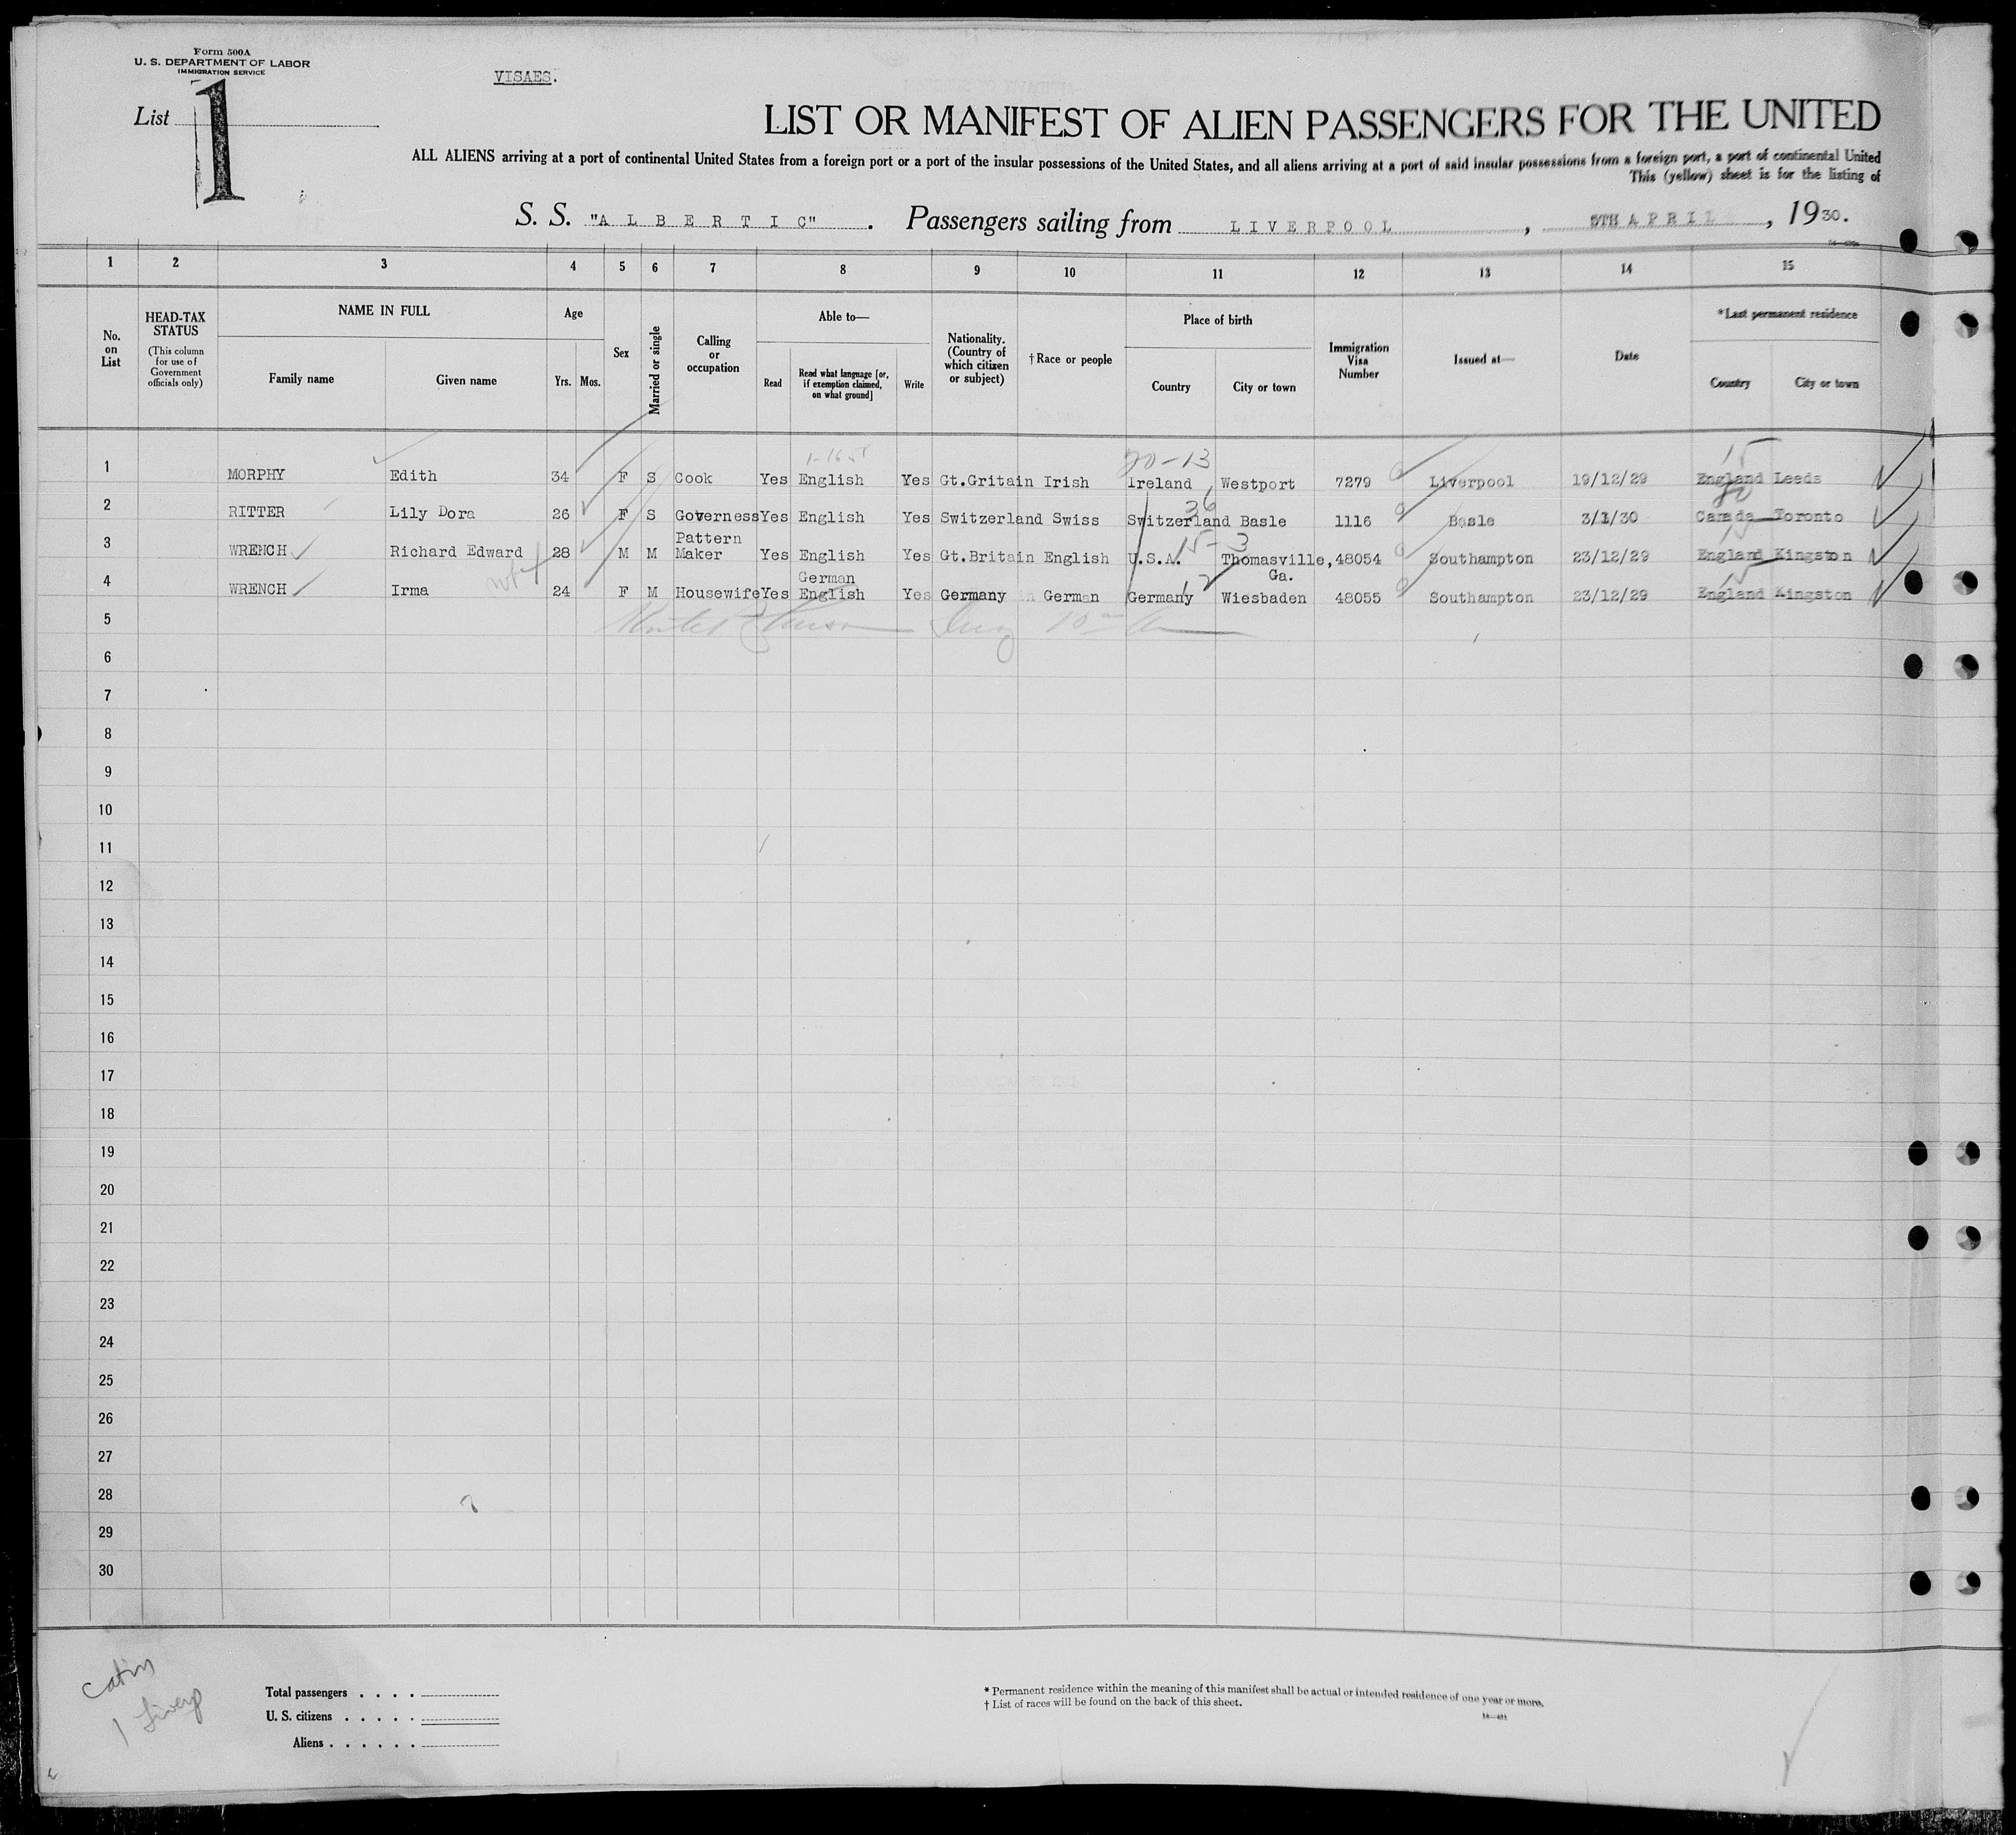 Form 500A
U. S. DEPARTMENT OF LABOR
IMMIGRATION SERVICE
VISAES.
List 1
LIST OR MANIFEST OF ALIEN PASSENGERS FOR THE UNITED
ALL ALIENS arriving at a port of continental United States from a foreign port or a port of the insular possessions of the United States, and all aliens arriving at a port of said insular possessions from a foreign port, a port of continental United
This (yellow) sheet is for the listing of
S. S. "ALBERTIC". Passengers sailing from LIVERPOOL, 5TH APRIL, 1930.
1 2 3 4 5 6 7 8 9 10 11 12 13 14 15
No. on List
HEAD-TAX STATUS
(This column for use of Government officials only)
NAME IN FULL
Family name
Given name
Age
Yrs. Mos.
Sex
Married or single
Calling or occupation
Able to—
Read
Read what language [or, if exemption claimed, on what ground]
Write
Nationality. (Country of which citizen or subject)
†Race or people
Place of birth
Country
City or town
Immigration Visa Number
Issued at—
Date
*Last permanent residence
Country
City or town
20-13 15
1 MORPHY Edith 34 F S Cook Yes English Yes Gt.Gritain Irish Ireland Westport 7279 Liverpool 19/12/29 England Leeds
36
2 RITTER Lily Dora 26 F S Governess Yes English Yes Switzerland Swiss Switzerland Basle 1116 Basle 3/1/30 Canada Toronto
Pattern 15-3
3 WRENCH Richard Edward 28 M M Maker Yes English Yes Gt.Britain English U.S.A. Thomasville, 48054 Southampton 23/12/29 England Kingston
German Ga.
4 WRENCH Irma 24 F M Housewife Yes English Yes Germany German Germany Wiesbaden 48055 Southampton 23/12/29 England Kingston
5
6
7
8
9
10
11
12
13
14
15
16
17
18
19
20
21
22
23
24
25
26
27
28
29
30
Total passengers . . . .
U. S. citizens . . . . .
Aliens . . . . . .
* Permanent residence within the meaning of this manifest shall be actual or intended residence of one year or more.
† List of races will be found on the back of this sheet.